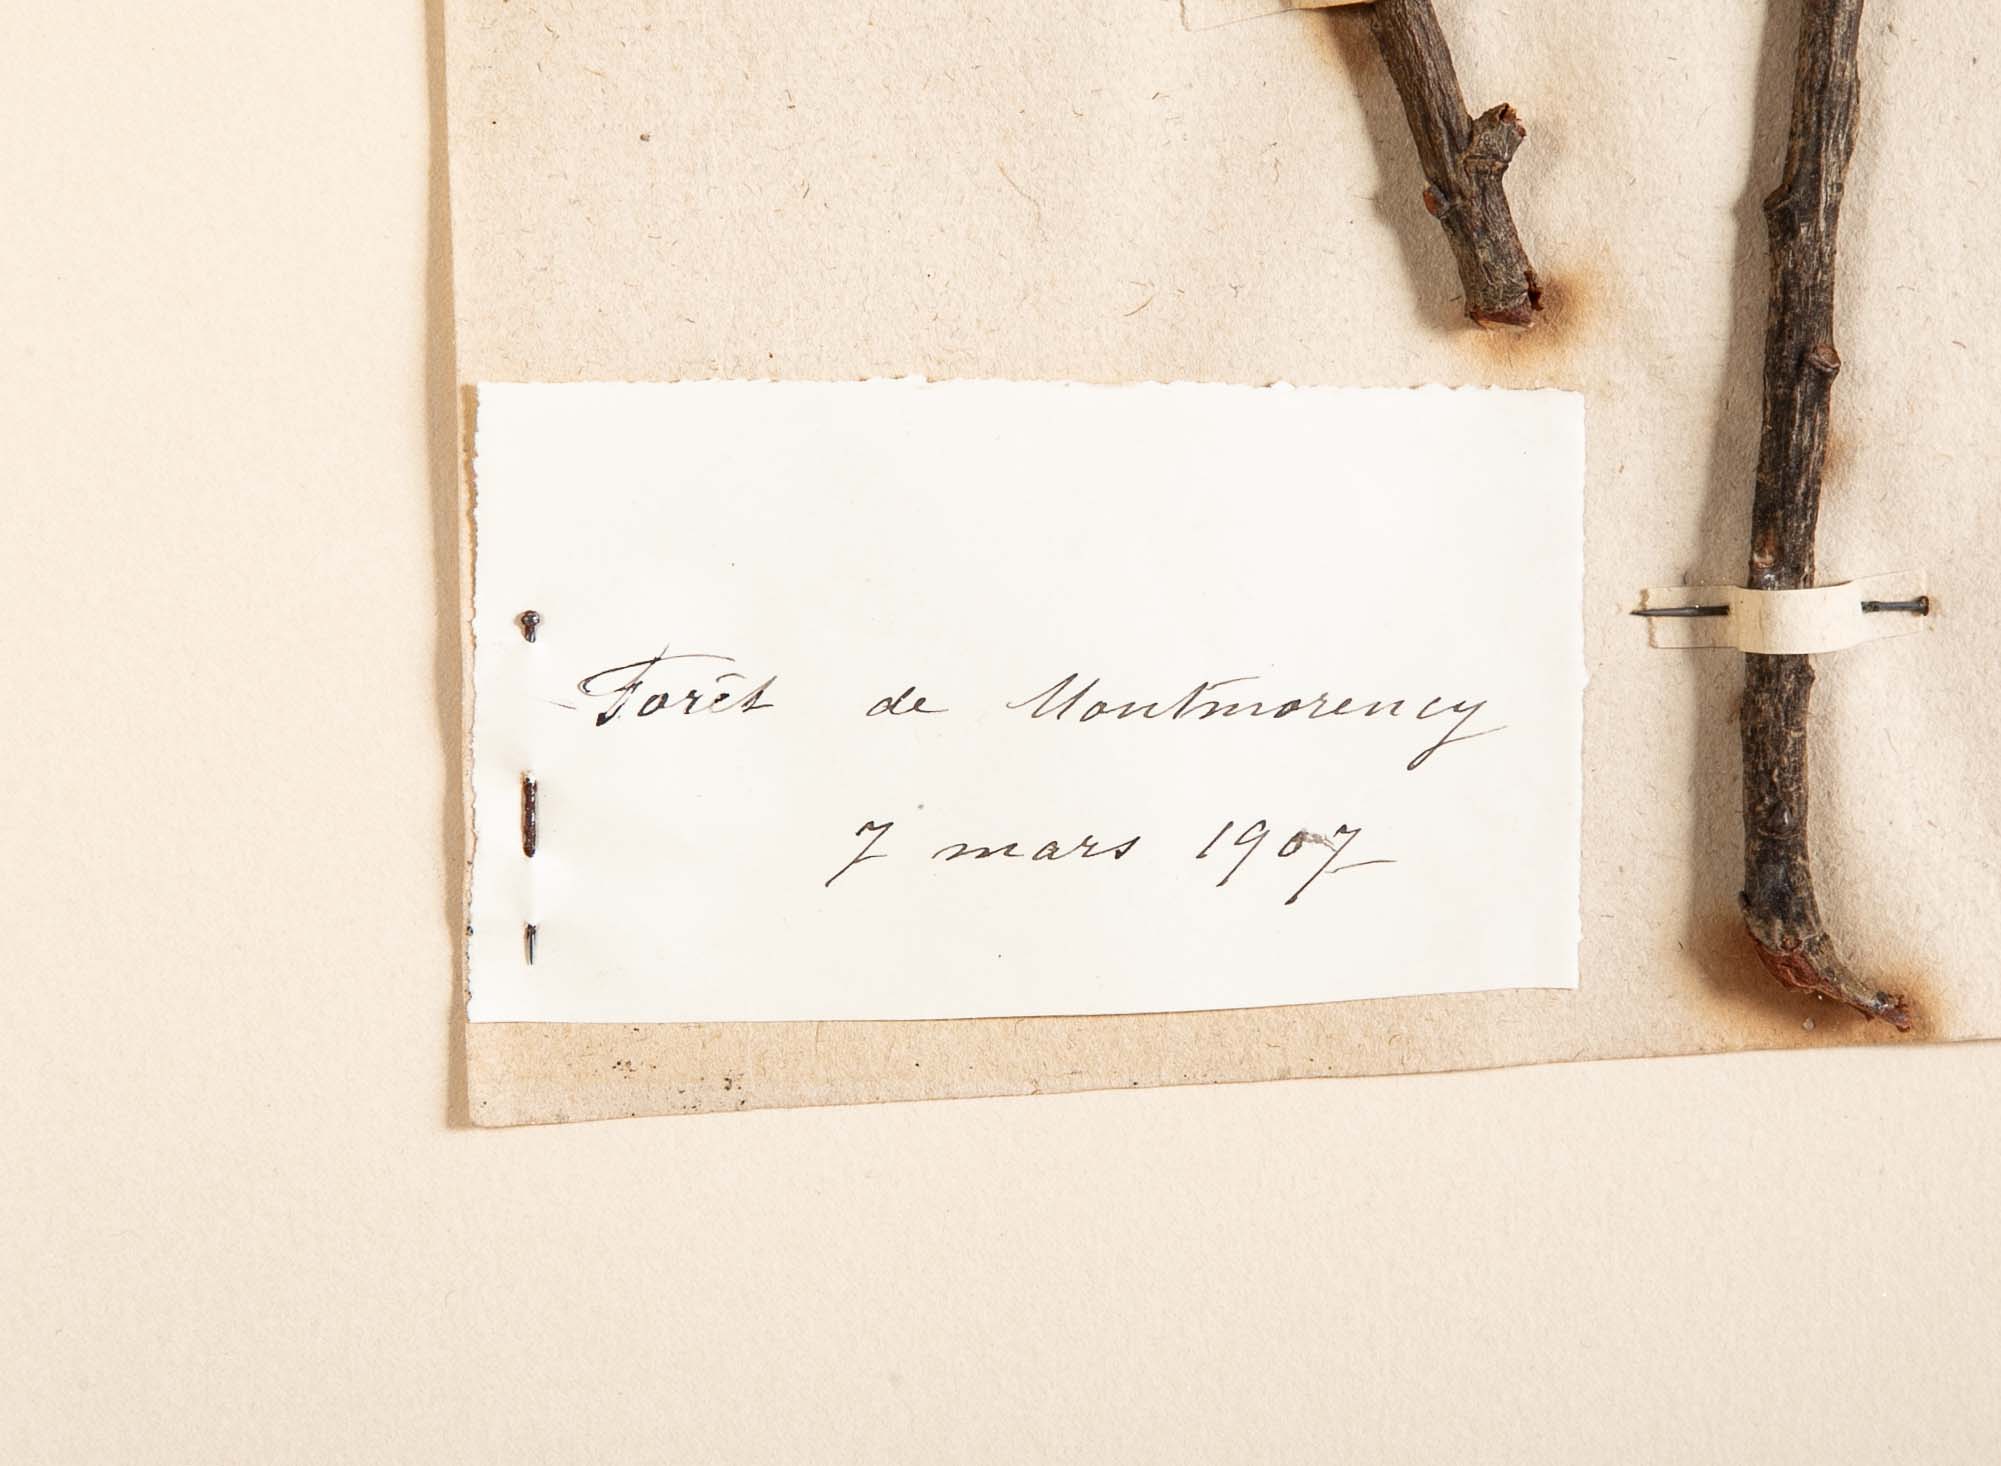 Forêt de Montmorency
7 mars 1907